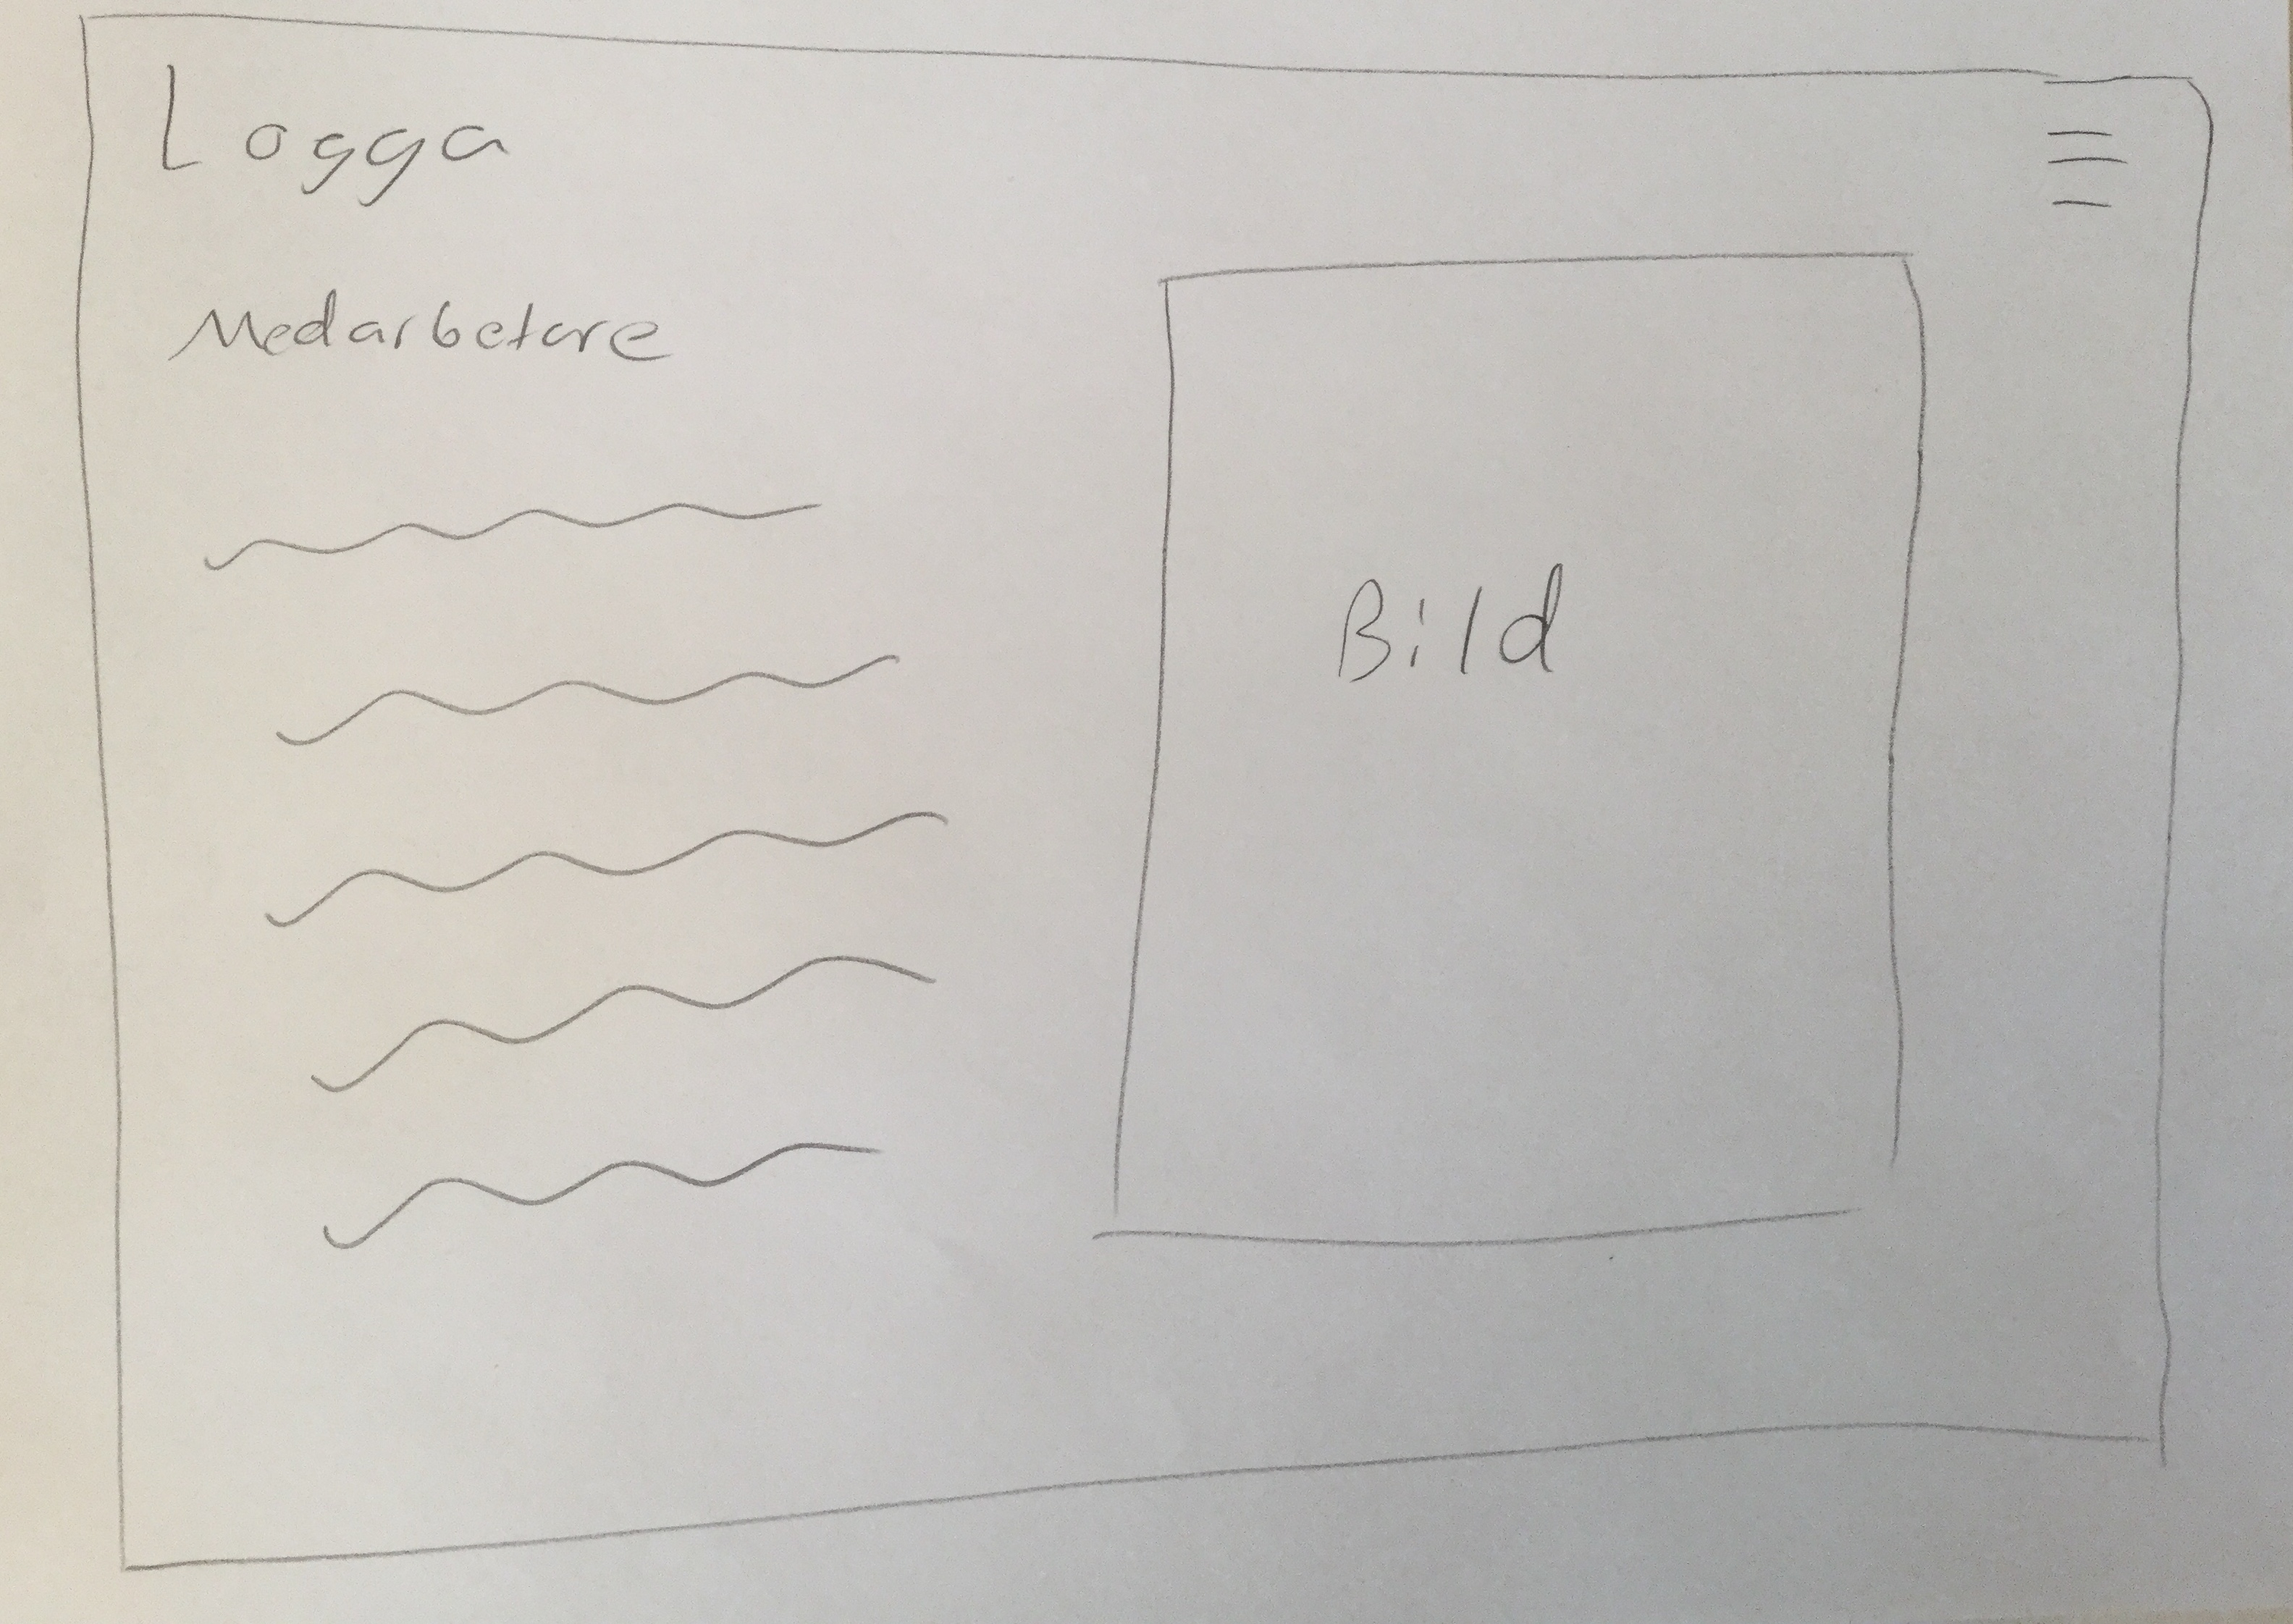 Logga
Medarbetare
Bild